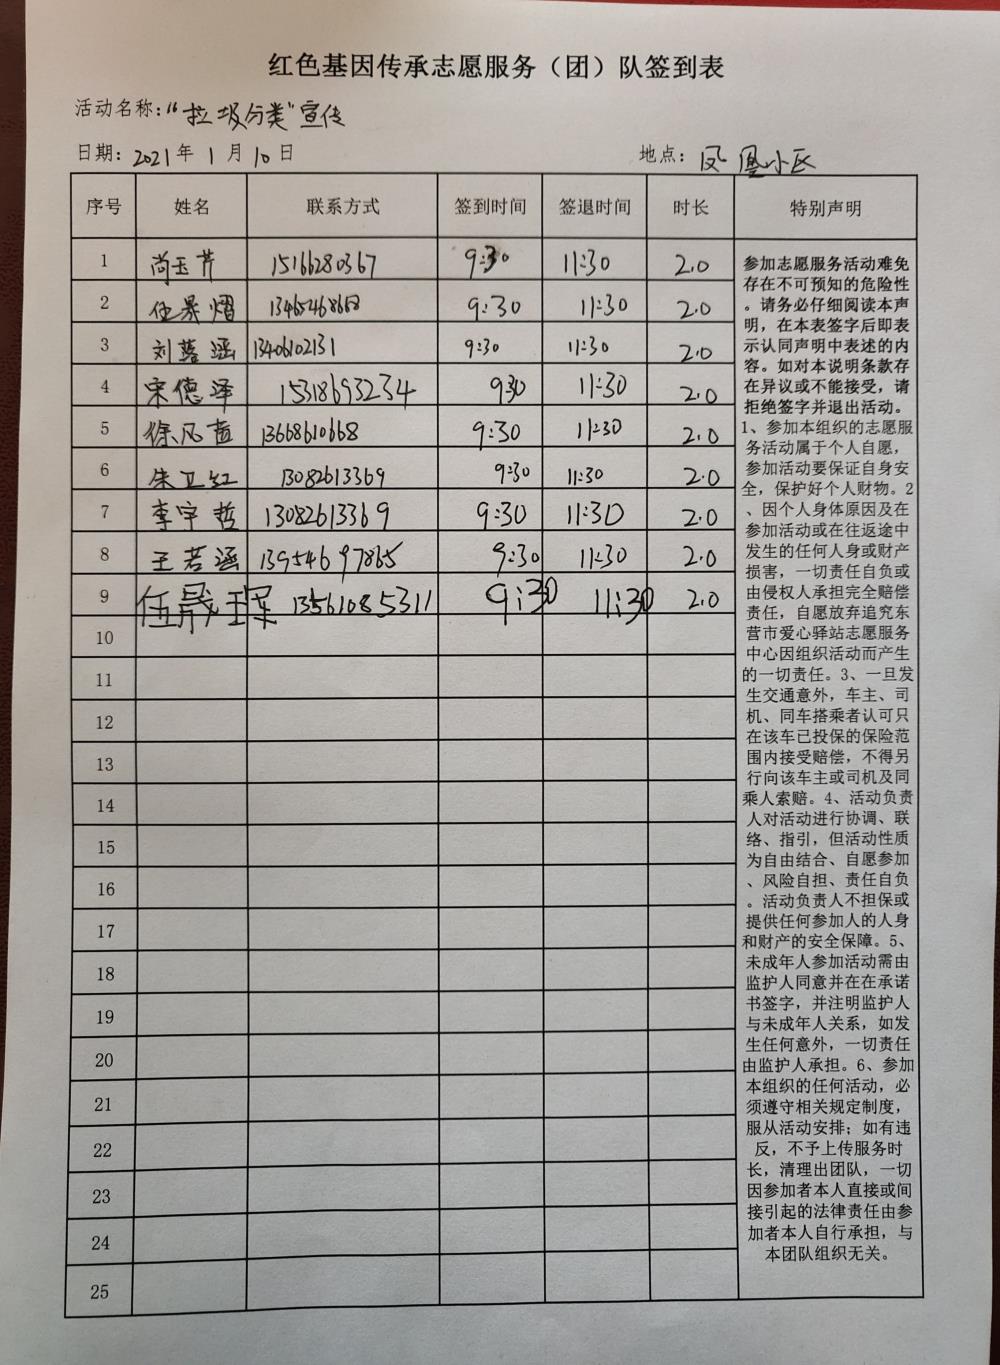 红色基因传承志愿服务（团）队签到表
活动名称：“垃圾分类”宣传
日期：2021年1月10日 地点：凤凰小区
序号 姓名 联系方式 签到时间 签退时间 时长 特别声明
1 尚玉芹 15166280367 9:30 11:30 2.0
2 伍景熠 13465468668 9:30 11:30 2.0
3 刘蕗涵 13406102131 9:30 11:30 2.0
4 宋德泽 15318693234 930 11:30 2.0
5 徐凤 13668610668 9:30 11:30 2.0
6 朱卫红 13082613369 9:30 11:30 2.0
7 李宇哲 13082613369 9:30 11:30 2.0
8 王若涵 13954697865 9:30 11:30 2.0
9 伍晟琛 13561085311 9:30 11:30 2.0
10
11
12
13
14
15
16
17
18
19
20
21
22
23
24
25
参加志愿服务活动难免
存在不可预知的危险性
。请务必仔细阅读本声
明，在本表签字后即表
示认同声明中表述的内
容。如对本说明条款存
在异议或不能接受，请
拒绝签字并退出活动。
1、参加本组织的志愿服
务活动属于个人自愿，
参加活动要保证自身安
全，保护好个人财物。2
、因个人身体原因及在
参加活动或在往返途中
发生的任何人身或财产
损害，一切责任自负或
由侵权人承担完全赔偿
责任，自愿放弃追究东
营市爱心驿站志愿服务
中心因组织活动而产生
的一切责任。3、一旦发
生交通意外，车主、司
机、同车搭乘者认可只
在该车已投保的保险范
围内接受赔偿，不得另
行向该车主或司机及同
乘人索赔。4、活动负责
人对活动进行协调、联
络、指引，但活动性质
为自由结合、自愿参加
、风险自担、责任自负
。活动负责人不担保或
提供任何参加人的人身
和财产的安全保障。5、
未成年人参加活动需由
监护人同意并在在承诺
书签字，并注明监护人
与未成年人关系，如发
生任何意外，一切责任
由监护人承担。6、参加
本组织的任何活动，必
须遵守相关规定制度，
服从活动安排；如有违
反，不予上传服务时
长，清理出团队，一切
因参加者本人直接或间
接引起的法律责任由参
加者本人自行承担，与
本团队组织无关。